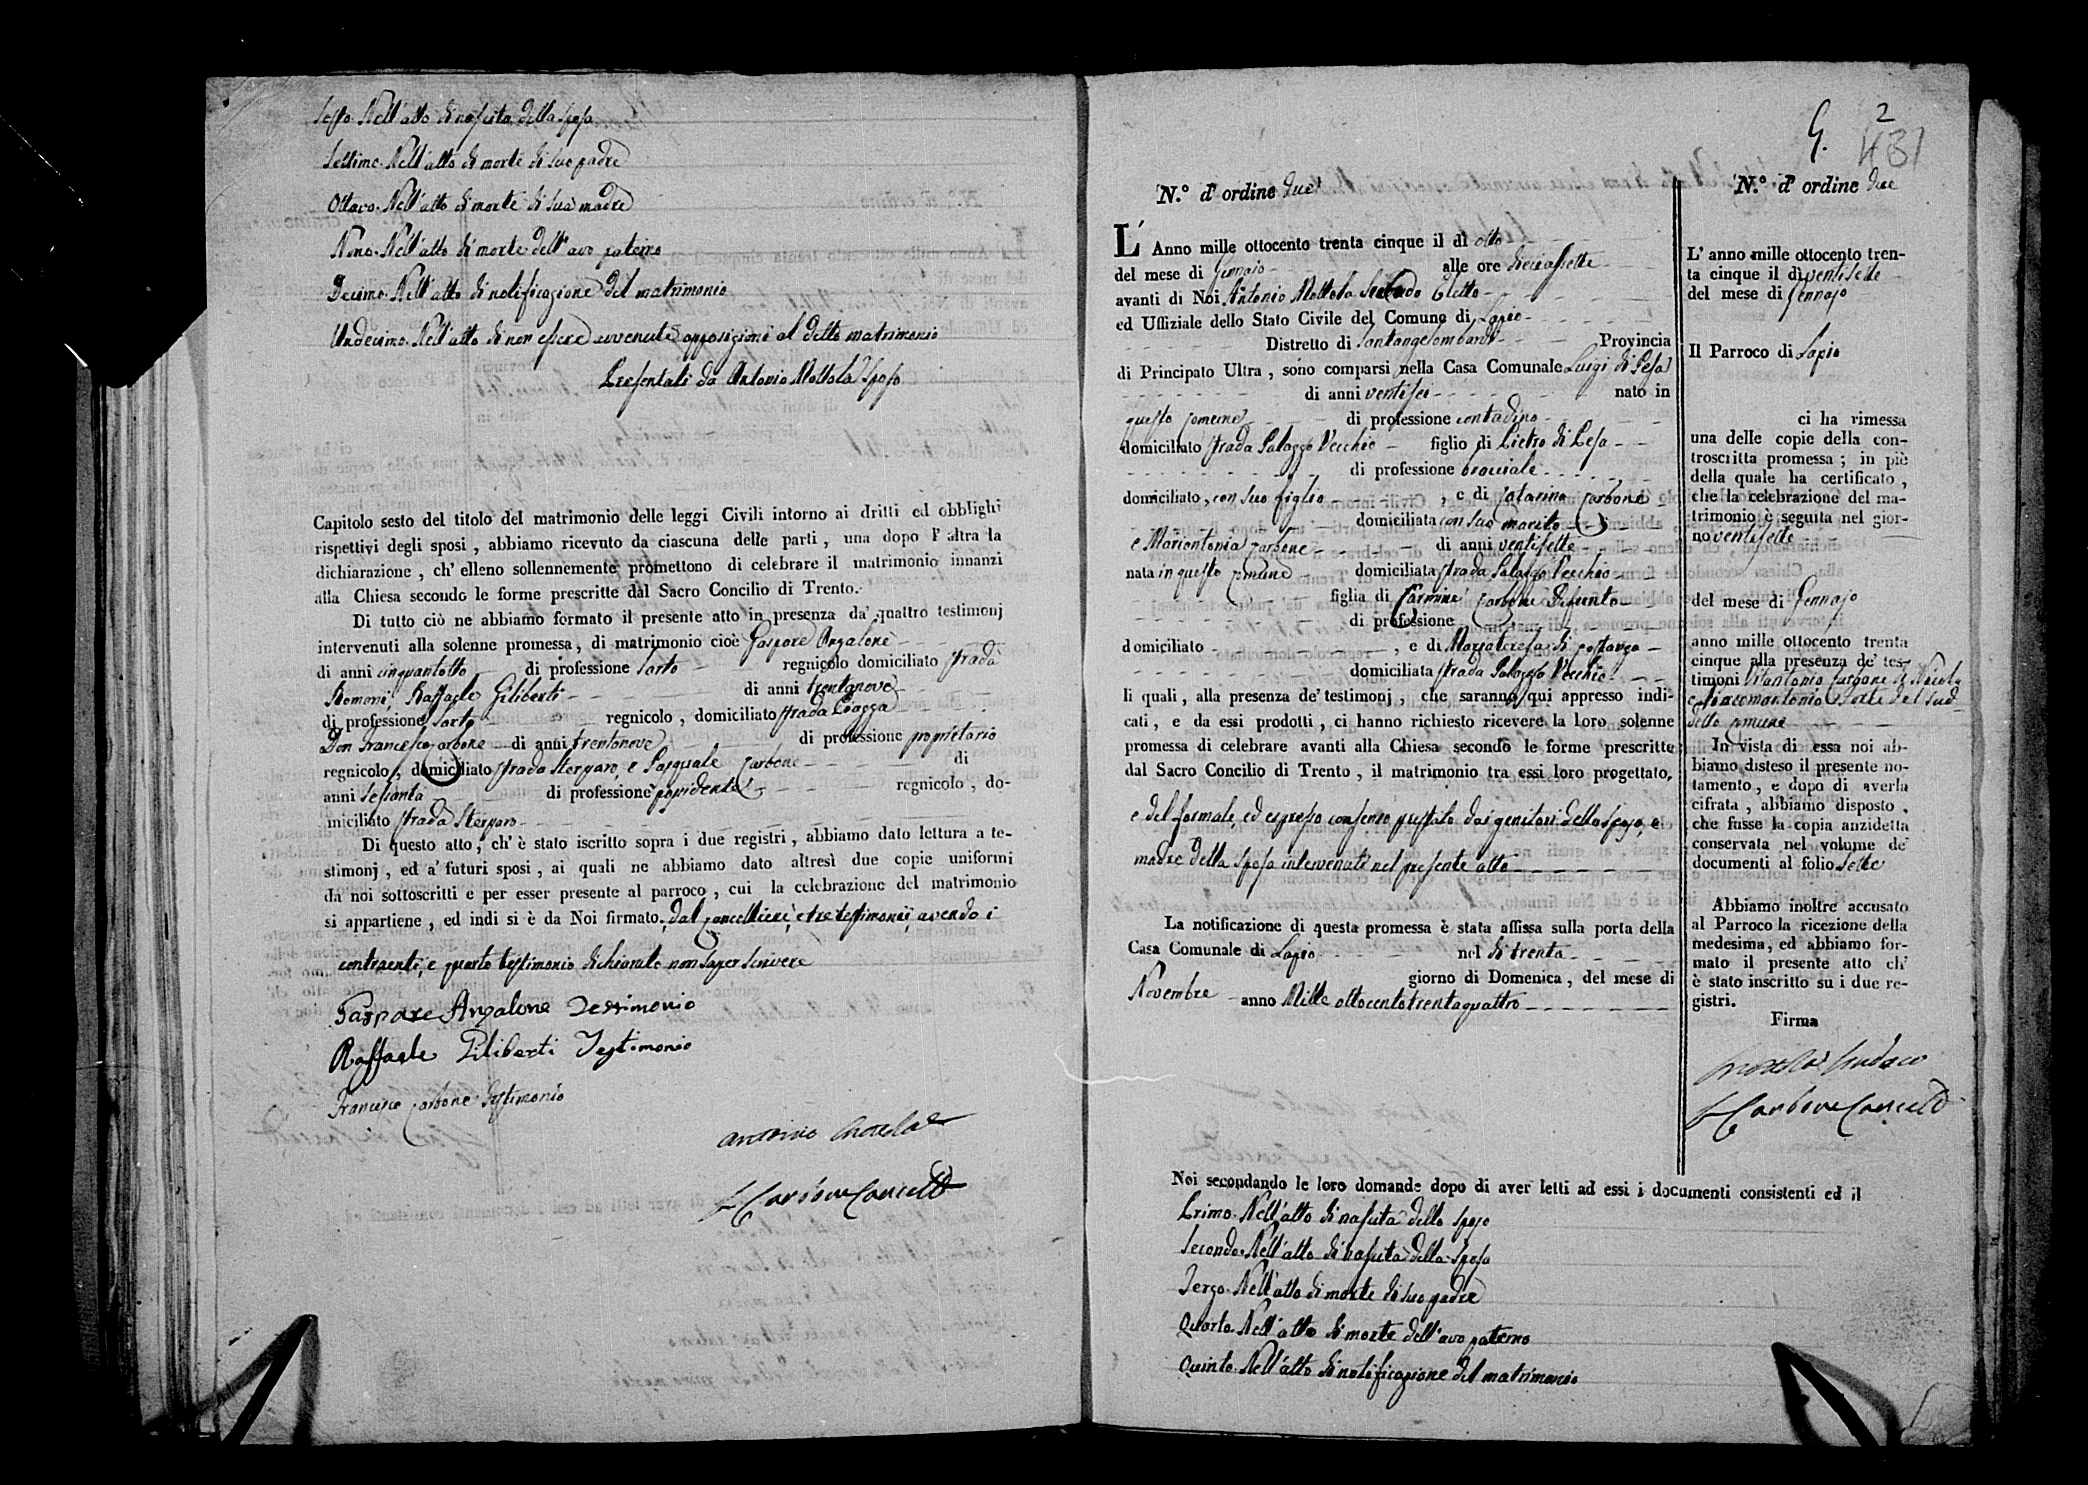 Sesto. Nell'atto di nascita della sposa
Settimo. Nell'atto di morte di suo padre
Ottavo. Nell'atto di morte di sua madre
Nono. Nell'atto di morte dell'avo paterno
Decimo. Nell'atto di notificazione del matrimonio
Undecimo. Nell'atto di non essere avvenute opposizioni al detto matrimonio
Presentati da Antonio Mottola Sposo
Capitolo sesto del titolo del matrimonio delle leggi Civili intorno ai dritti ed obblighi
rispettivi degli sposi, abbiamo ricevuto da ciascuna delle parti, una dopo l'altra la
dichiarazione, ch'elleno sollennemente promettono di celebrare il matrimonio innanzi
alla Chiesa secondo le forme prescritte dal Sacro Concilio di Trento.
Di tutto ciò ne abbiamo formato il presente atto in presenza da' quattro testimonj
intervenuti alla solenne promessa, di matrimonio cioè Gaspare Anzalone
di anni cinquantotto di professione sarto regnicolo domiciliato strada
Romani, Raffaele Giliberti di anni trentanove
di professione sarto regnicolo, domiciliato strada Piazza
Don Francesco Carbone di anni trentanove di professione proprietario
regnicolo, domiciliato strada Sterparo, e Pasquale Carbone di
anni sessanta di professione possidente regnicolo, do-
miciliato strada Sterparo
Di questo atto, ch'è stato iscritto sopra i due registri, abbiamo dato lettura a te-
stimonj, ed a' futuri sposi, ai quali ne abbiamo dato altresì due copie uniformi
da noi sottoscritti e per esser presente al parroco, cui la celebrazione del matrimonio
si appartiene, ed indi si è da Noi firmato, dal Cancelliere, e tre testimonii, avendo i
contraenti, e quarto testimonio dichiarato non saper scrivere
Gaspare Anzalone Testimonio
Raffaele Giliberti Testimonio
Francesco Carbone Testimonio
Antonio Mottola
Carbone Cancell
2
431
N.º d'ordine due
L'Anno mille ottocento trenta cinque il dì otto
del mese di Gennajo alle ore diciassette
avanti di Noi Antonio Mottola Secondo Eletto
ed Uffiziale dello Stato Civile del Comune di Lapio
Distretto di Santangelombardi Provincia
di Principato Ultra, sono comparsi nella Casa Comunale Luigi di Pesa
di anni ventisei nato in
questo Comune di professione contadino
domiciliato strada Palazzo Vecchio figlio di Pietro di Pesa
di professione bracciale
domiciliato, con suo figlio, e di Catarina Carbone
domiciliata con suo marito
e Mariantonia Carbone di anni ventisette
nata in questo Comune domiciliata strada Palazzo Vecchio
figlia di Carmine Carbone Defunto
di professione
domiciliato, e di Mariateresa di Costanzo
domiciliata strada Palazzo Vecchio
li quali, alla presenza de' testimonj, che saranno qui appresso indi-
cati, e da essi prodotti, ci hanno richiesto ricevere la loro solenne
promessa di celebrare avanti alla Chiesa secondo le forme prescritte
dal Sacro Concilio di Trento, il matrimonio tra essi loro progettato,
e del formale, ed espresso consenso prestato dai genitori dello sposo, e
madre della sposa intervenuti nel presente atto
La notificazione di questa promessa è stata affissa sulla porta della
Casa Comunale di Lapio nel dì trenta
giorno di Domenica, del mese di
Novembre anno Mille ottocentotrentaquattro
N.º d'ordine due
L'anno mille ottocento tren-
ta cinque il dì ventisette
del mese di Gennajo
Il Parroco di Lapio
ci ha rimessa
una delle copie della con-
troscritta promessa; in piè
della quale ha certificato,
che la celebrazione del ma-
trimonio è seguita nel gior-
no ventisette
del mese di Gennajo
anno mille ottocento trenta
cinque alla presenza de' tes-
timoni Vitantonio Carbone di Nicola
e Giacomantonio Forte del sud-
detto Comune
In vista di essa noi ab-
biamo disteso il presente no-
tamento, e dopo di averla
cifrata, abbiamo disposto,
che fusse la copia anzidetta
conservata nel volume de'
documenti al folio sette
Abbiamo inoltre accusato
al Parroco la ricezione della
medesima, ed abbiamo for-
mato il presente atto ch'
è stato inscritto su i due re-
gistri.
Firma
Mottola Sindaco
Carbone Cancell
Noi secondando le loro domande dopo di aver letti ad essi i documenti consistenti ed il
Primo. Nell'atto di nascita dello sposo
Secondo. Nell'atto di nascita della sposa
Terzo. Nell'atto di morte di suo padre
Quarto. Nell'atto di morte dell'avo paterno
Quinto. Nell'atto di notificazione del matrimonio